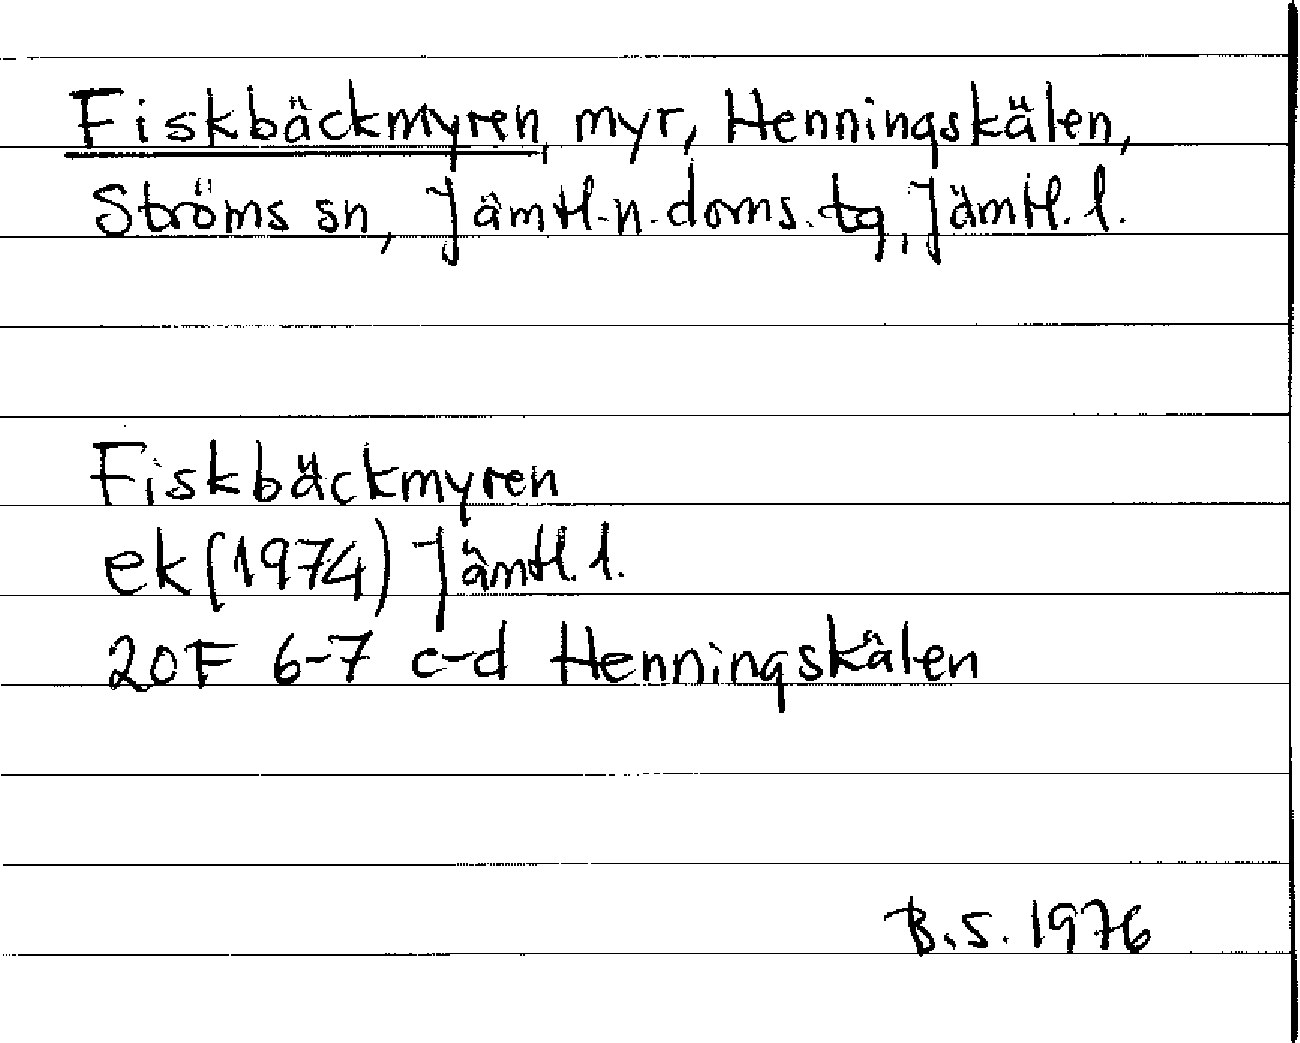 Fiskbäckmyren, myr, Henningskälen,
Ströms sn, Jämtl. n. doms. tg, Jämtl. l.
Fiskbäckmyren
ek (1974) Jämtl. l.
20F 6-7 c-d Henningskälen
B.S. 1976